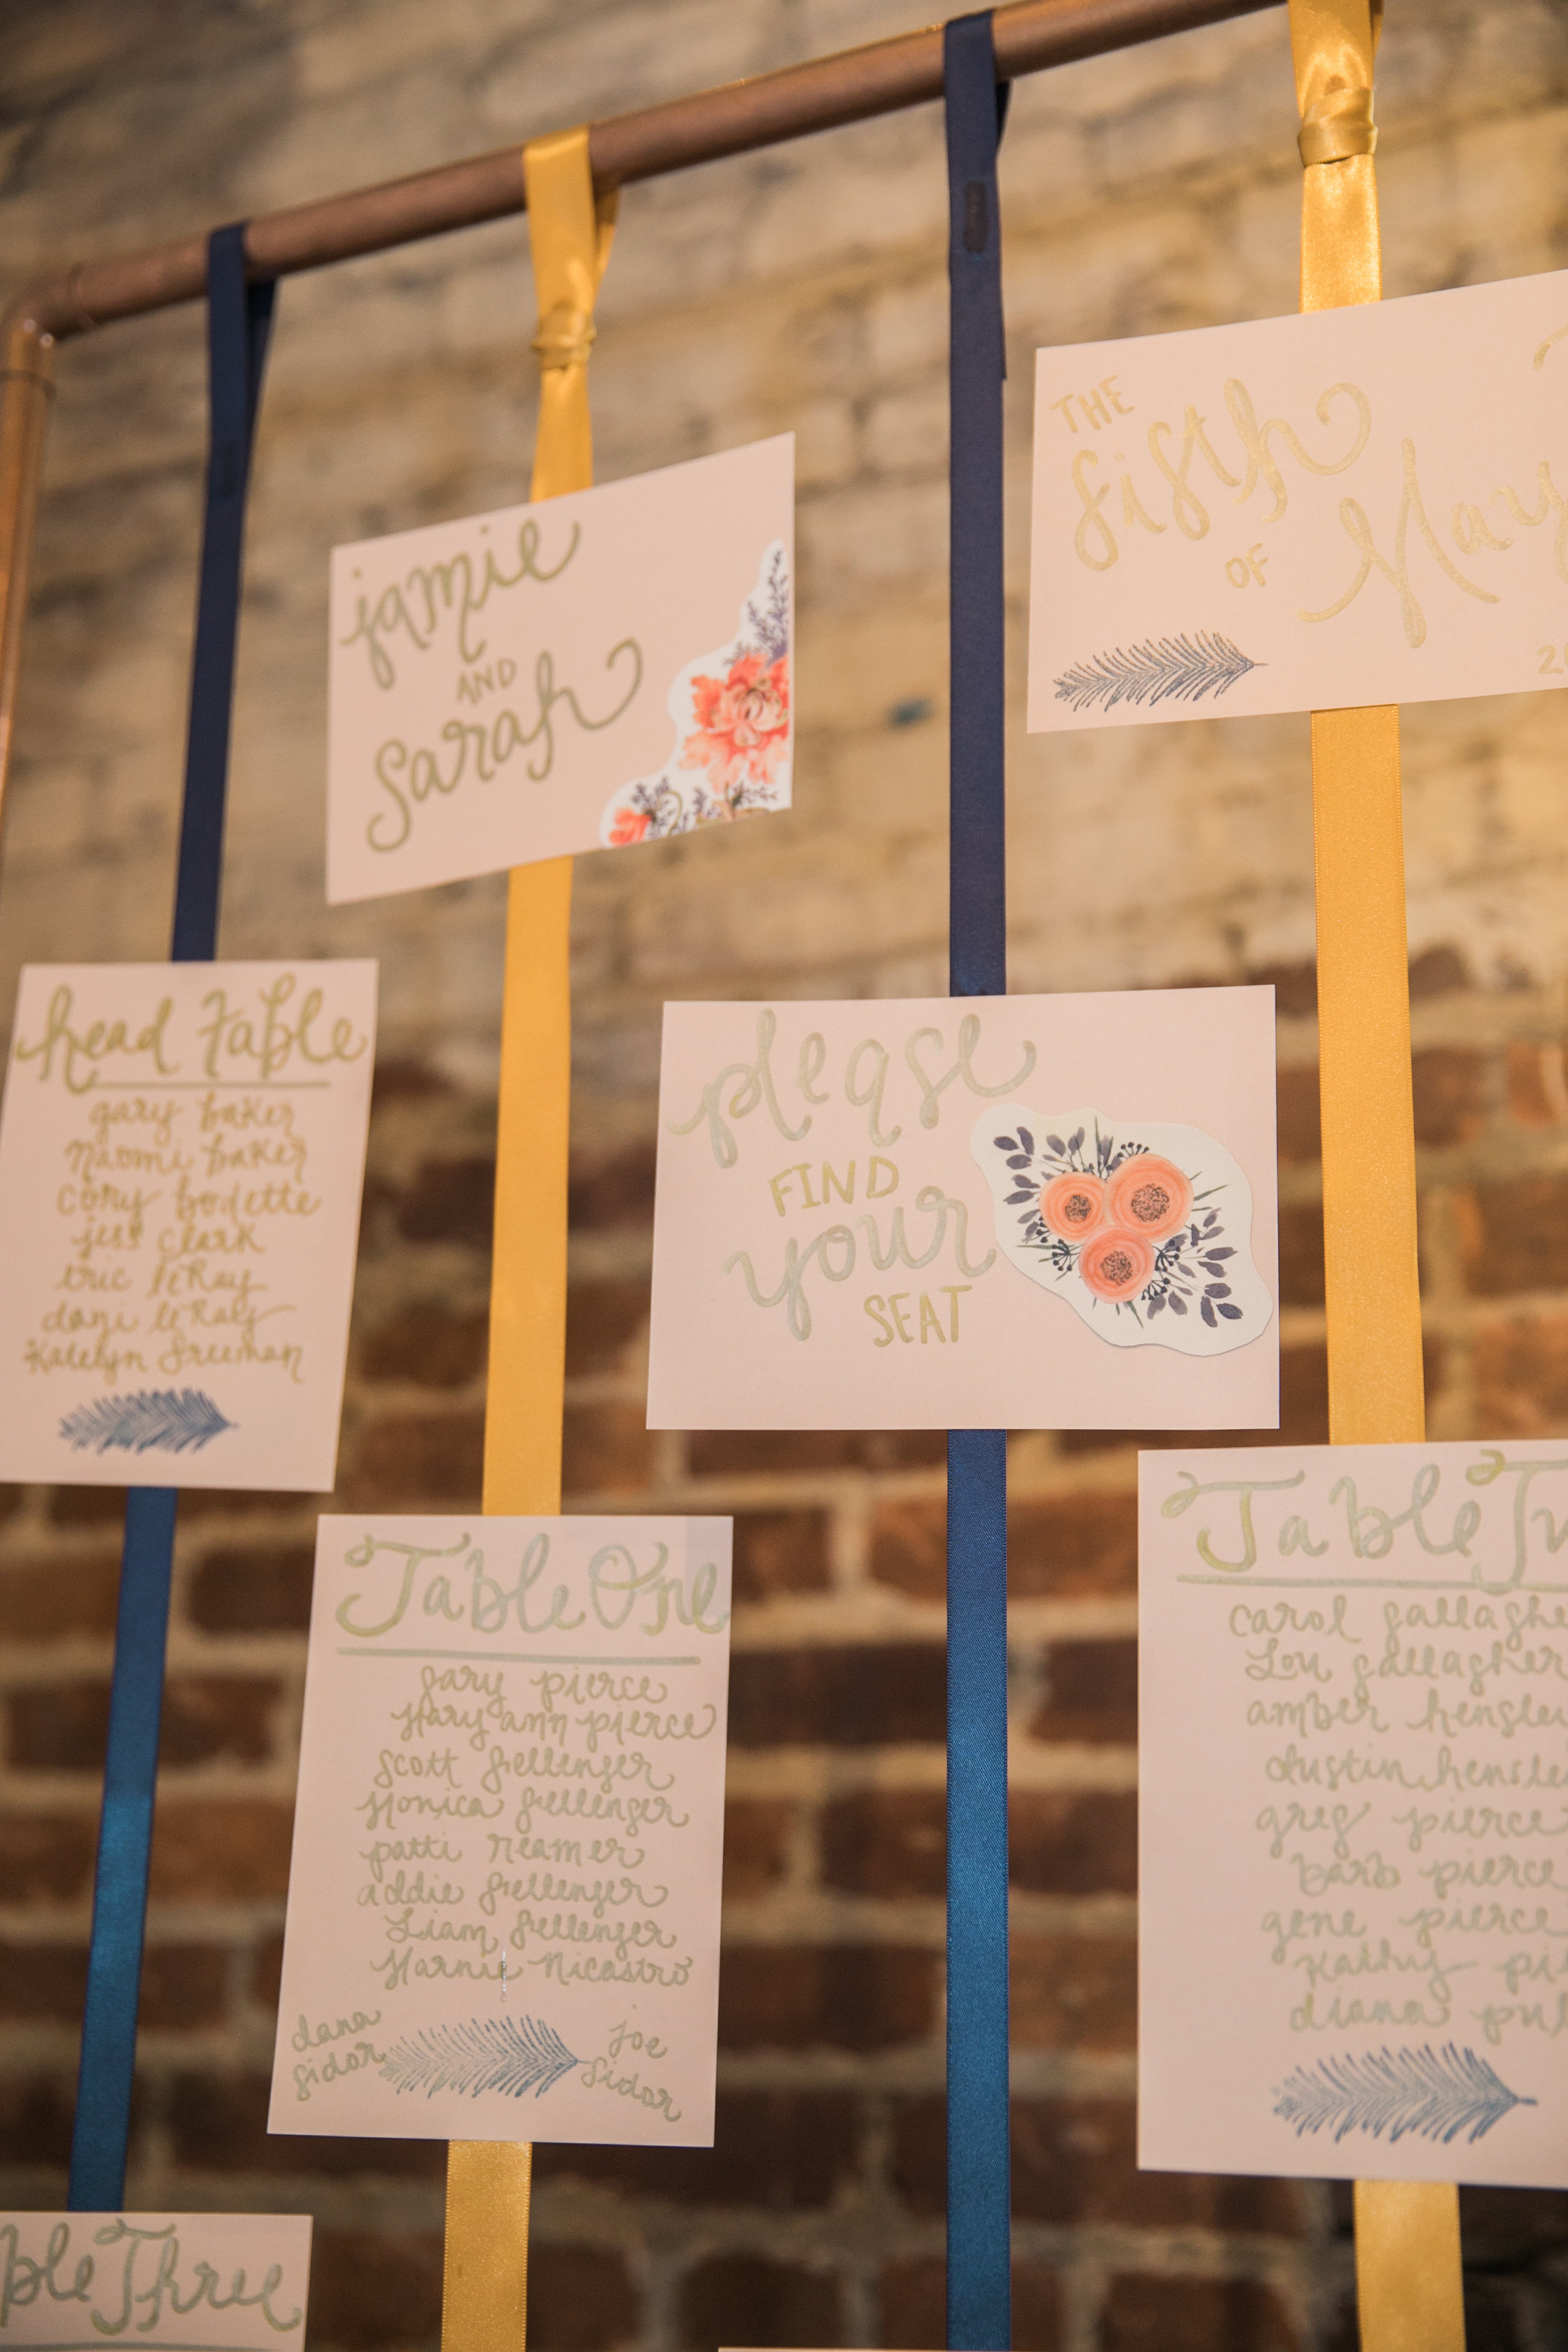 jamie
AND
Sarah
THE
fifth
OF
May
20
head table
gary baker
Naomi baker
cory bodette
jess clark
eric leRay
dani leRay
Katelyn Freeman
please
FIND
your
SEAT
Table One
gary pierce
Mary ann pierce
scott fellenger
Monica fellenger
patti reamer
addie fellenger
Liam fellenger
Marnie Nicastro
dana
sidor
joe
sidor
Table Tw
carol gallaghe
Lou gallagher
amber hensle
dustin hensle
greg pierce
barb pierce
gene pierce
Kathy pi
diana pu
ble Three